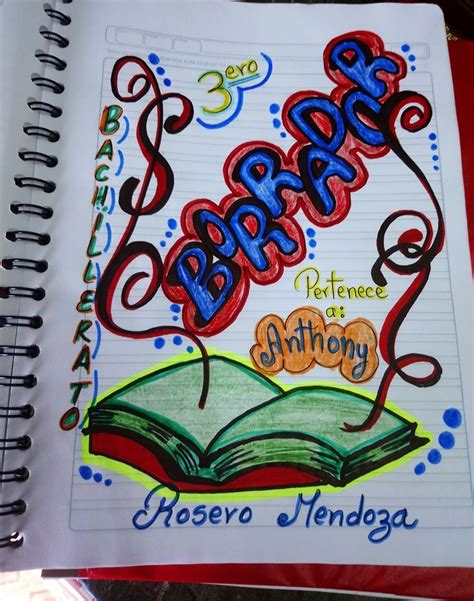 3ero
BACHILLERATO
BORRADOR
Pertenece
a:
Anthony
Rosero Mendoza